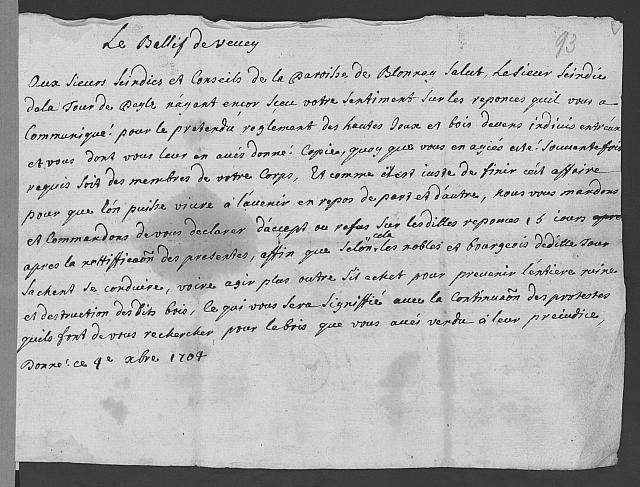 93
Le Ballif de Vevey
Aux Sieurs Scindics et Conseils de la Paroisse de Blonnay Salut, Le Sieur Scindic
dela Tour de Peylz n'ayant encor sceu votre Sentiment Sur les reponces quil vous a
Communiqué pour le pretendu reglement des hautes Joux et bois devens indivis entr'eux
et vous dont vous leur en avés donné Copie, quoy que vous en ayiés eté Souventefois
requis soit des membres de votre Corps, Et comme il est iuste de finir cêt affaire
pour que l'on puisse vivre à l'avenir en repos de part et d'autre, nous vous mandons
et Commandons de vous declarer d'accept ou refus Sur lesdittes reponces 15 jours apres
apres la nottifficaôn des presentes, affin que Selon cela les nobles et bourgeois deditte Tour
Sachent Se conduire, voire agir plus outre S'il echet pour prevenir l'entiere ruine
et destruction desdits bois, ce qui vous sera Signiffié avec la Continuaôn des protestes
quils font de vous rechercher pour le bois que vous avés vendu à leur preiudice,
Donné ce 4e xbre 1704